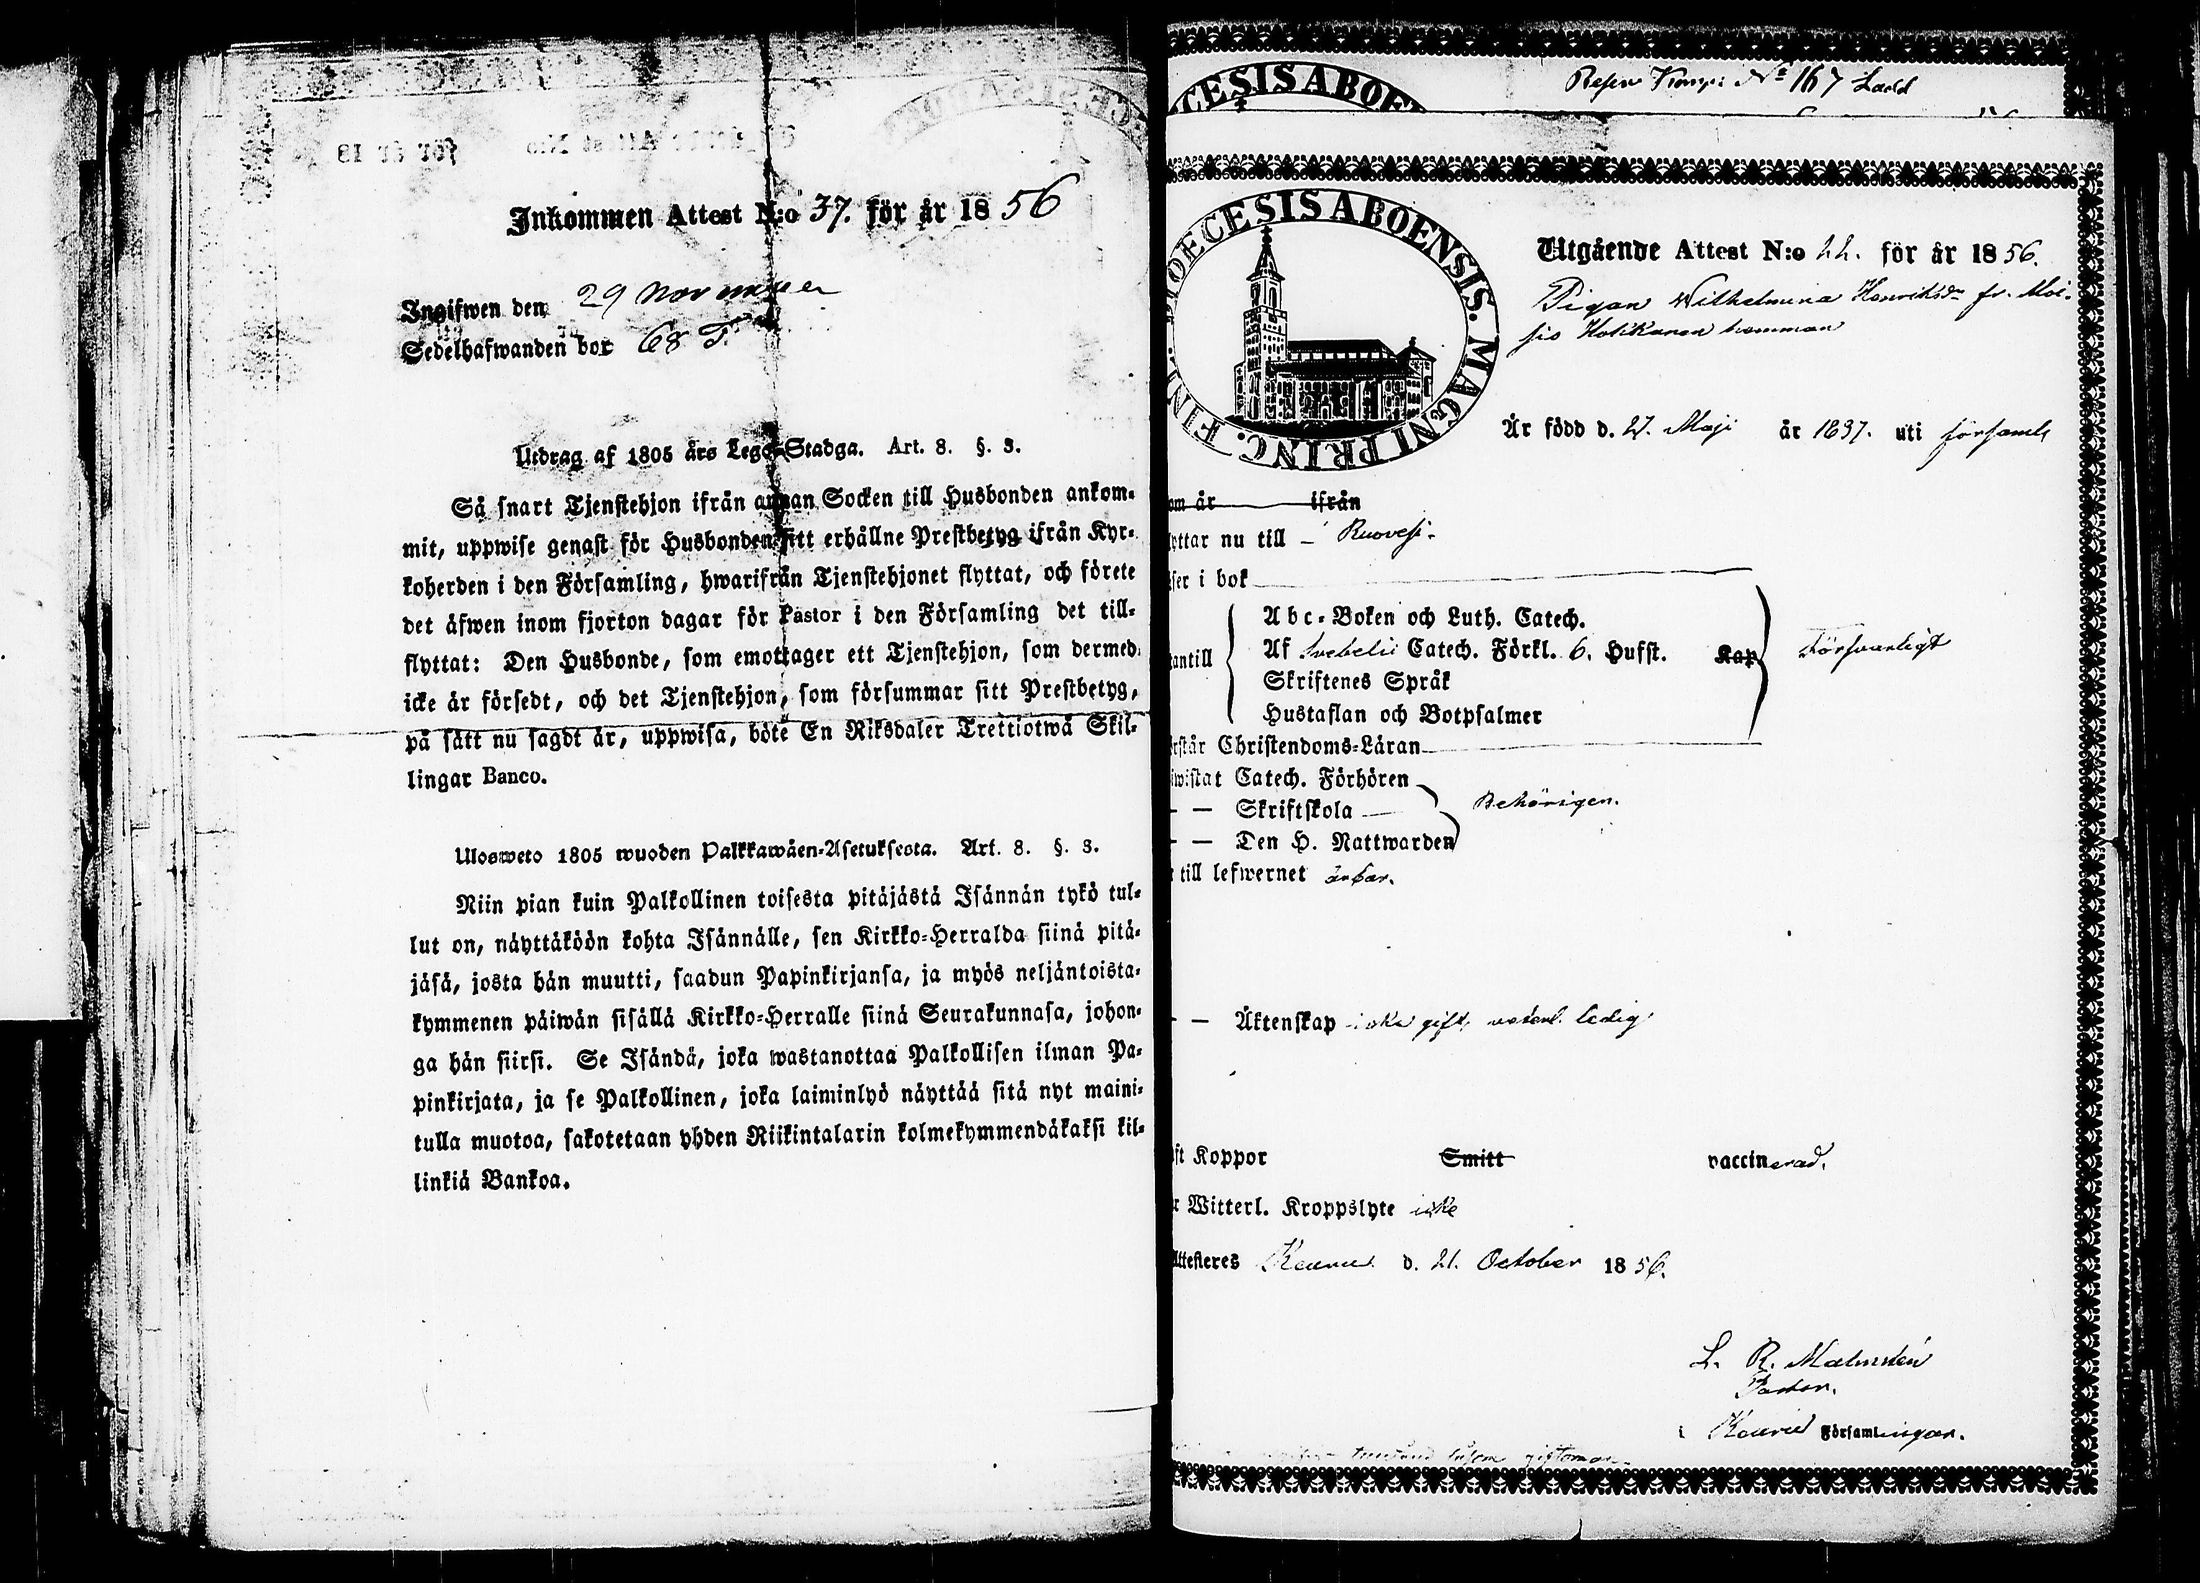 Inkommen Attest N:o 37. för år 1856
Ingifwen den 29 November
Sedelhafwanden bor 68 T.
Utdrag af 1805 års Lego-Stadga. Art. 8. §. 3.
Så snart Tjenstehjon ifrån annan Socken till Husbonden ankom-
mit, uppwise genast för Husbonden sitt erhållne Prestbetyg ifrån Kyr-
koherden i den Församling, hwarifrån Tjenstehjonet flyttat, och förete
det äfwen inom fjorton dagar för Pastor i den Församling det till-
flyttat: Den Husbonde, som emottager ett Tjenstehjon, som dermed
icke är försedt, och det Tjenstehjon, som försummar sitt Prestbetyg,
på sätt nu sagdt är, uppwisa, böte En Riksdaler Trettiotwå Skil-
lingar Banco.
Ulosweto 1805 wuoden Palkkawäen-Asetuksesta. Art. 8. §. 3.
Niin pian kuin Palkollinen toisesta pitäjästä Isännän tykö tul-
lut on, näyttäköön kohta Isännälle, sen Kirkko-Herralda siinä pitä-
jäsä, josta hän muutti, saadun Papinkirjansa, ja myös neljäntoista-
kymmenen päiwän sisällä Kirkko-Herralle siinä Seurakunnasa, johon-
ga hän siirsi. Se Isändä, joka wastanottaa Palkollisen ilman Pa-
pinkirjata, ja se Palkollinen, joka laiminlyö näyttää sitä nyt maini-
tulla muotoa, sakotetaan yhden Riikintalarin kolmekymmendäkaksi kil-
linkiä Bankoa.
CESIS ABOEN
No 167
DIOECESIS ABOENSIS. MAGNI PRINC. FINL.
Utgående Attest N:o 22. för år 1856.
Pigan Wilhelmina Henriksdr fr. Moi-
sio hemman
Är född d. 27. Maji år 1837. uti församl
om år ifrån
yttar nu till Ruovesi.
ser i bok
Abc-Boken och Luth. Catech.
antill Af Svebelii Catech. Förkl. 6. Hufst. Kap Försvarligt
Skriftenes Språk
Hustaflan och Botpsalmer
rstår Christendoms-Läran
iwistat Catech. Förhören
— — Skriftskola Behörigen.
— — Den H. Nattwarden
till lefwernet ärbar.
— — Äktenskap icke gift, veterl. ledig
ft Koppor Smitt vaccinerad.
r Witterl. Kroppslyte icke
Attesteres Keuru d. 21. October 1856.
L. R. Malmstén
Pastor.
i Keuru Församlingar.
giftoman